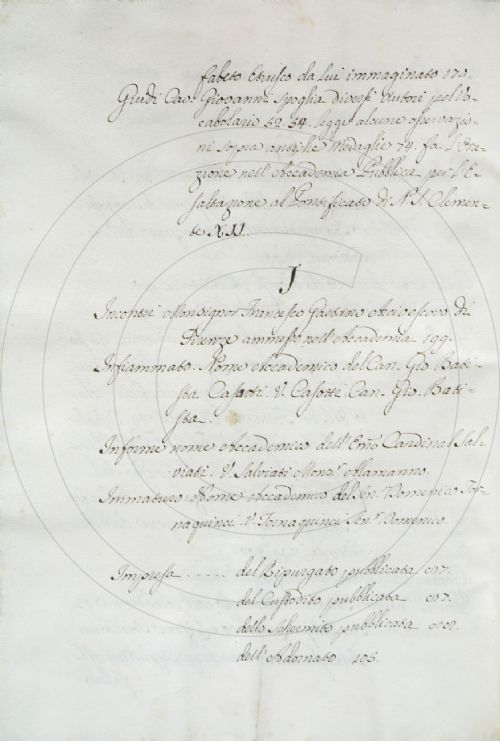 fabeto Etrusco da lui immaginato 170.
Giudi Cav. Giovanni Spoglia diversi Autori pel Vo-
cabolario 52. 54. legge alcune osservazio-
ni sopra antiche Medaglie 74. fa l'Ora-
zione nell'Accademia Pubblica per l'E-
saltazione al Pontificato di N. S. Clemen-
te XII.
I
Incontri Monsignor Francesco Gaetano Arcivescovo di
Firenze ammesso nell'Accademia 199.
Infiammato Nome Accademico del Can. Gio. Bati-
sta Casotti V. Casotti Can. Gio. Bati-
sta.
Informe nome Accademico dell'Emo Cardinal Sal-
viati. V. Salviati Monsr. Alamanno.
Immaturo Nome Accademico del Sen. Domenico Tor-
naquinci V. Tornaquinci Senr. Domenico.
Impresa ..... del Ripurgato pubblicata
del Custodito pubblicata
dello Schermito pubblicata
dell'Adornato 105.